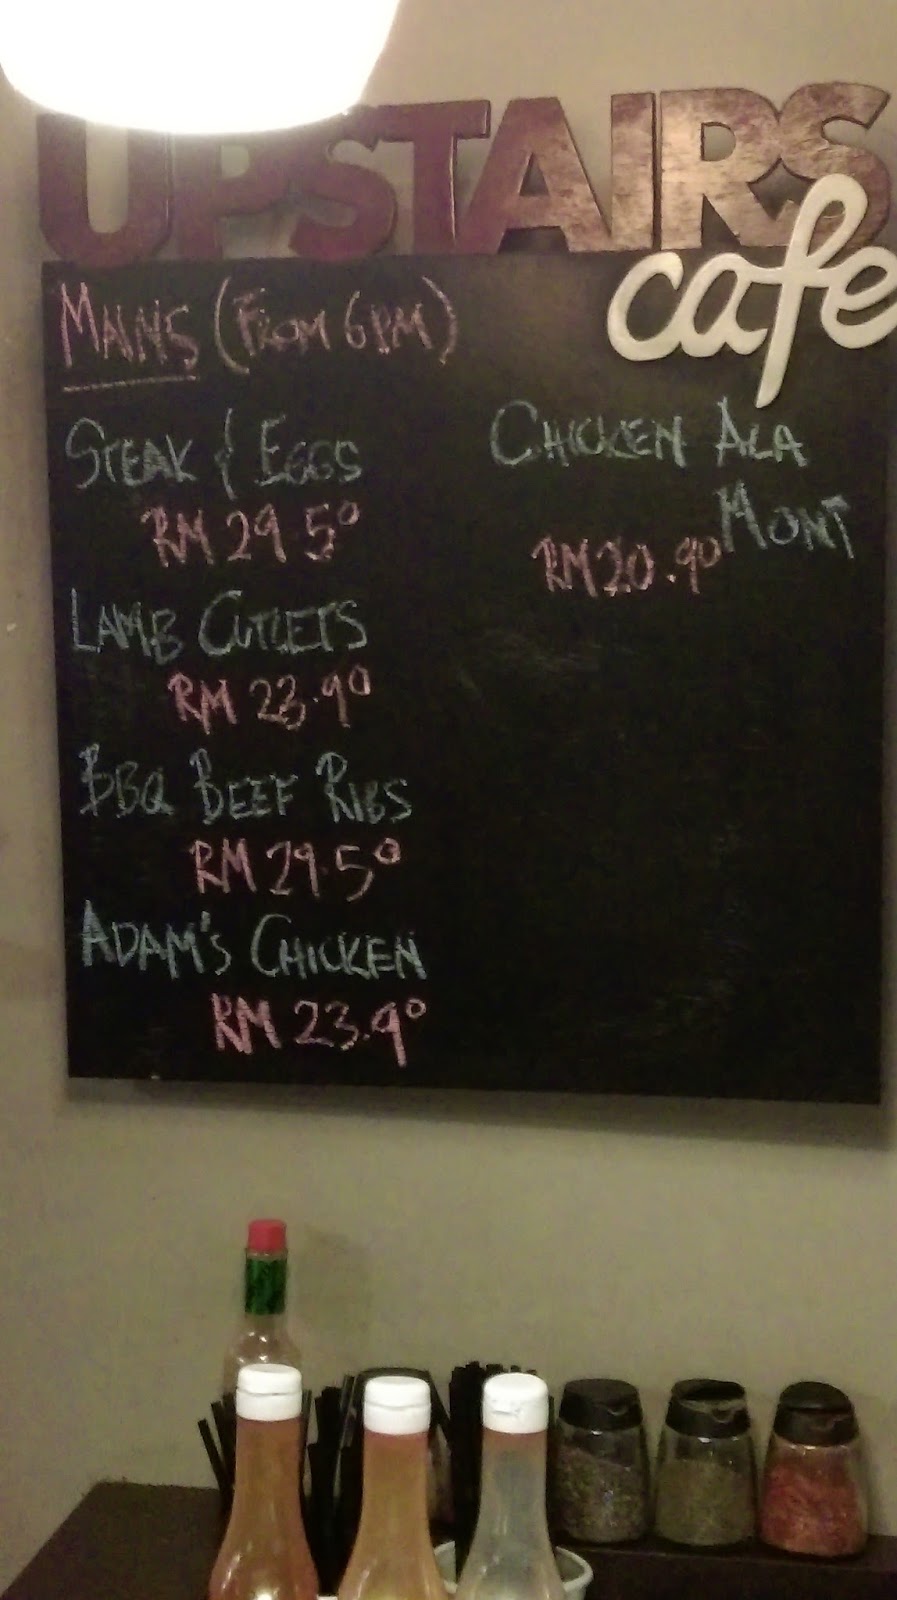 UPSTAIRS
cafe
MAINS (FROM 6PM)
STEAK & EGGS
RM 29.50
LAMB CUTLETS
RM 23.90
BBQ BEEF RIBS
RM 29.50
ADAM'S CHICKEN
RM 23.90
CHICKEN ALA
MONT
RM 20.90